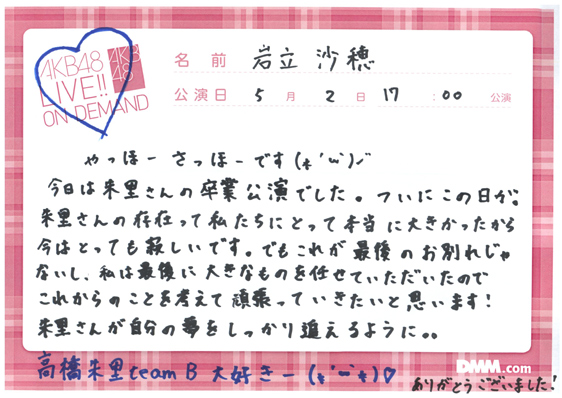 AKB48
LIVE!!
ON DEMAND
AKB
48
名前 岩立 沙穂
公演日 5 月 2 日 17 :00 公演
やっほー さっほーです(*'ω')ノ
今日は朱里さんの卒業公演でした。ついにこの日が。
朱里さんの存在って私たちにとって本当に大きかったから
今はとっても寂しいです。でもこれが最後のお別れじゃ
ないし、私は最後に大きなものを任せていただいたので
これからのことを考えて頑張っていきたいと思います!
朱里さんが自分の夢をしっかり追えるように。。
高橋朱里team B 大好きー(*'ω'*)♡
DMM.com
ありがとうございました!